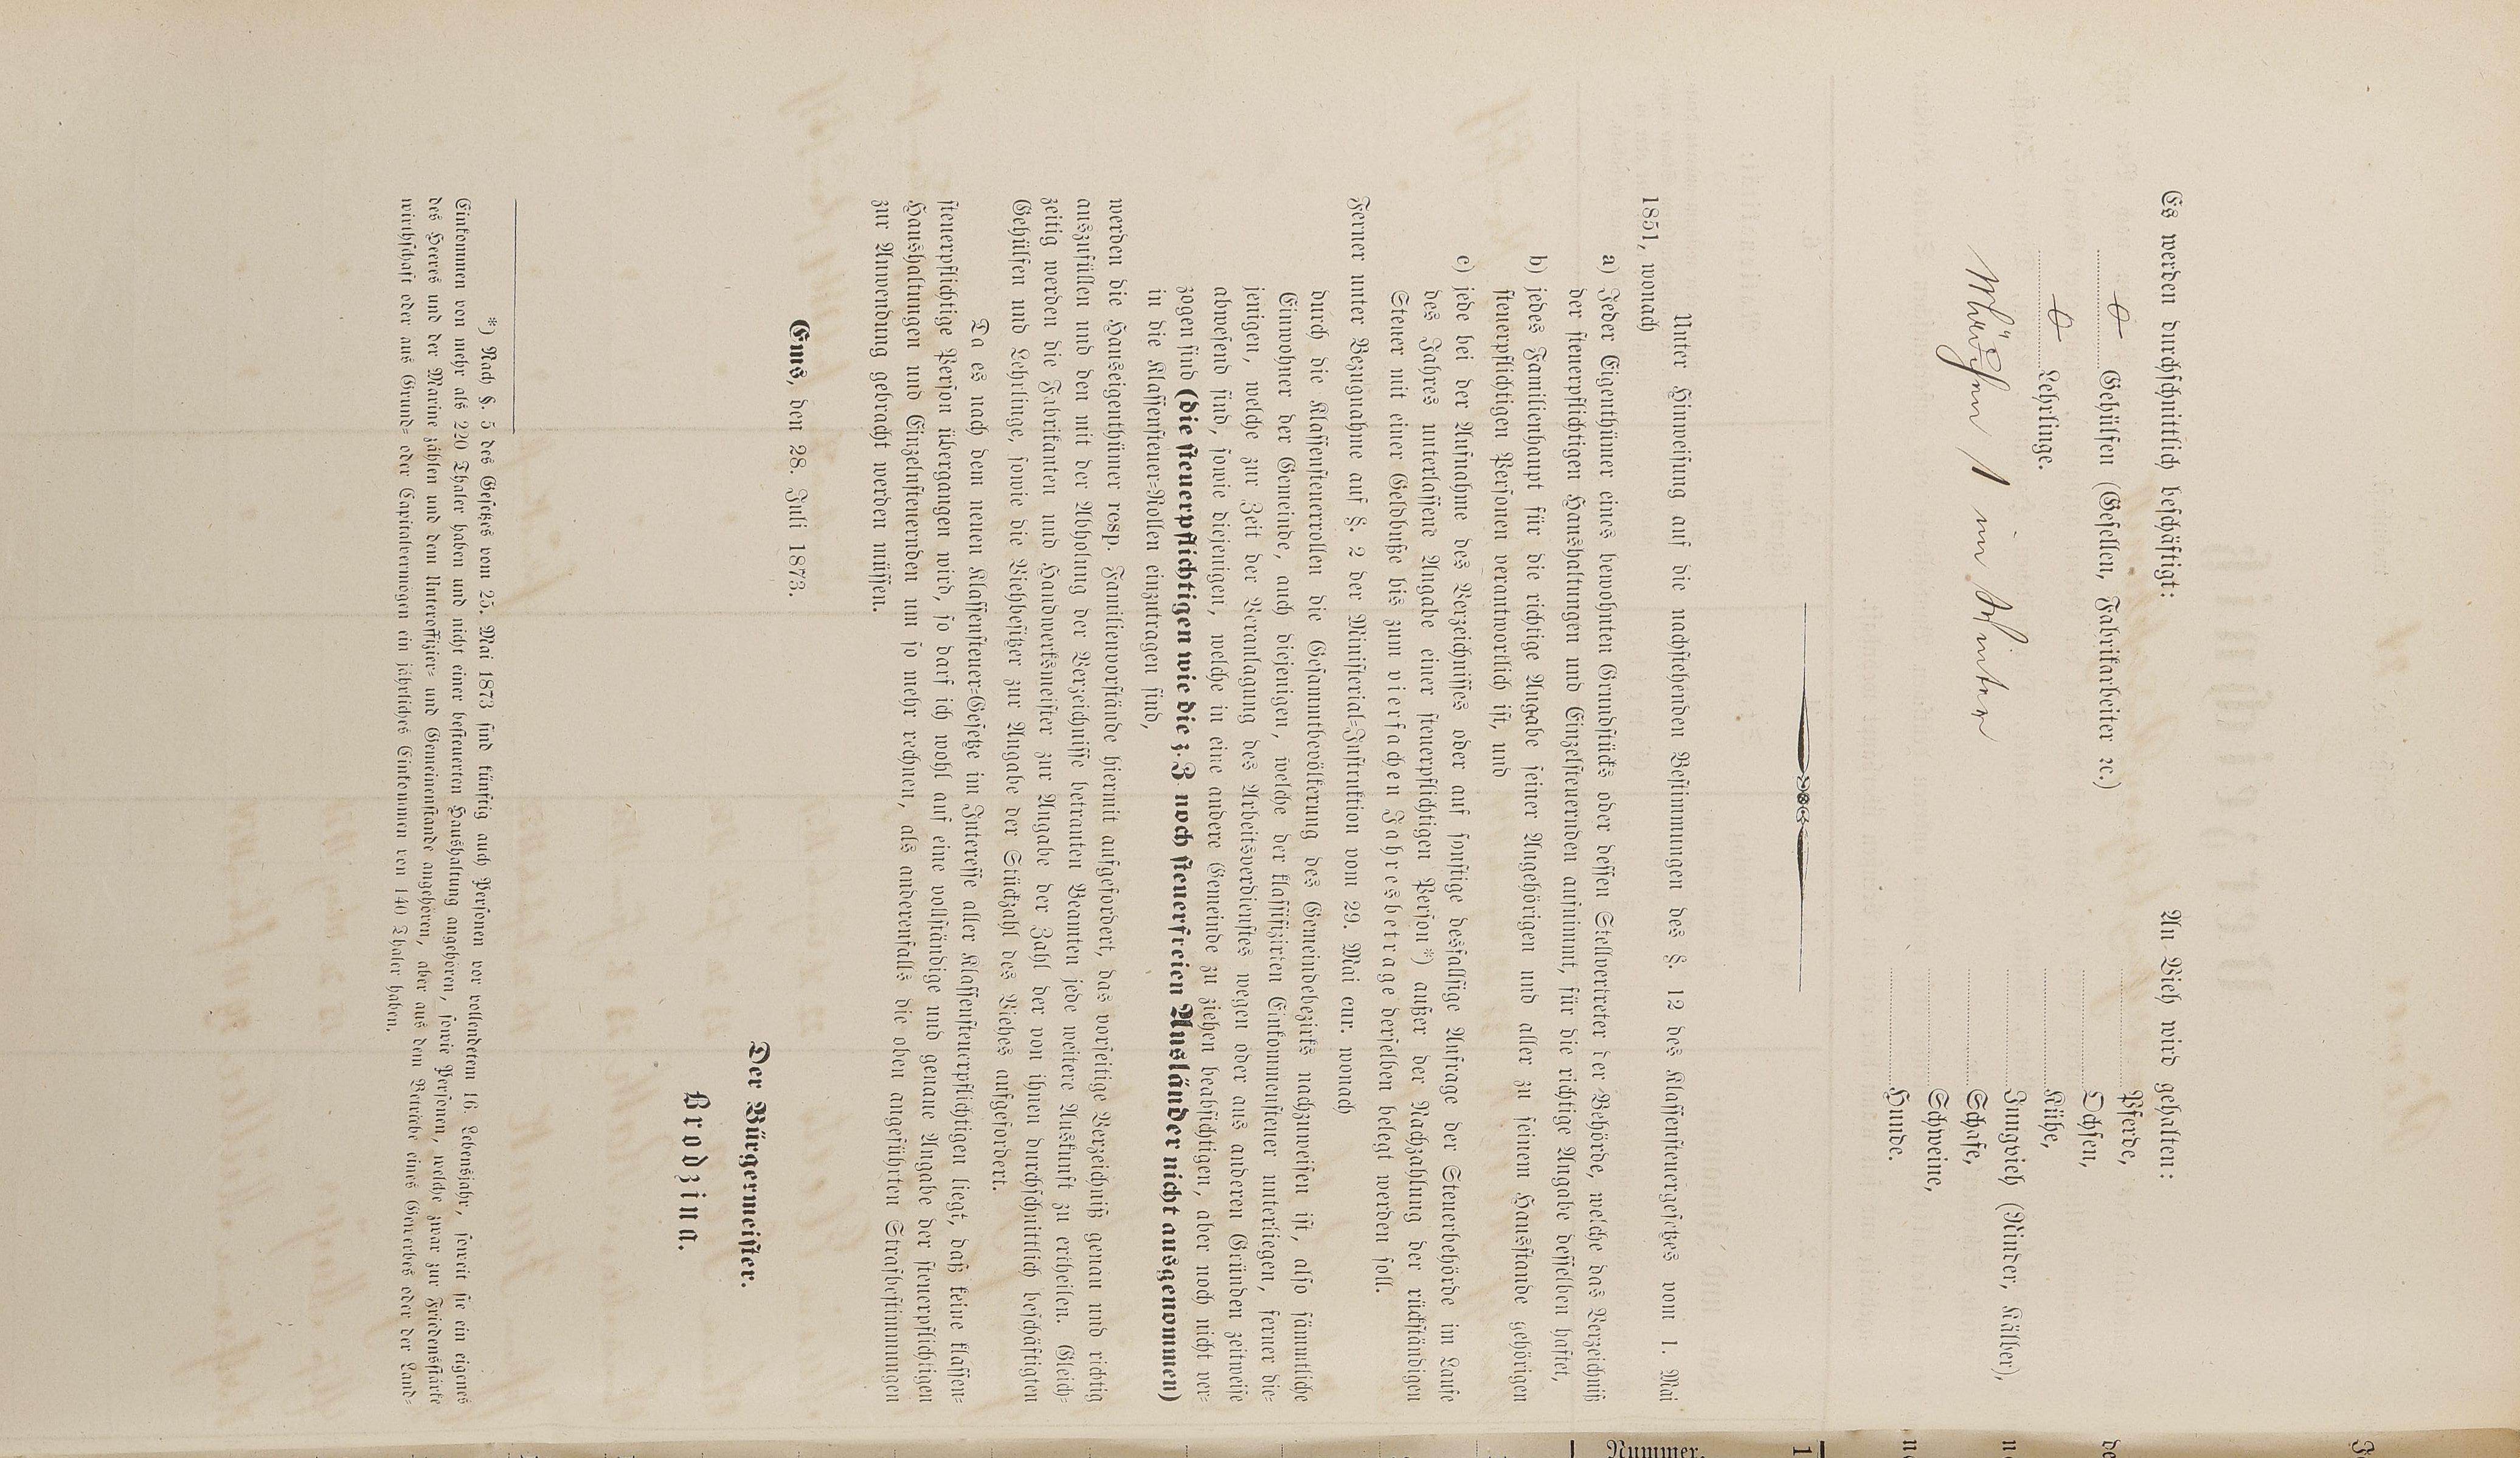 Es werden durchschnittlich beschäftigt:
Gehülfen (Gesellen, Fabrikarbeiter ꝛc.)
Lehrlinge.
1 im Winter
An Vieh wird gehalten:
Pferde,
Ochsen,
Kühe,
Jungvieh (Rinder, Kälber),
Schafe,
Schweine,
Hunde.
Unter Hinweisung auf die nachstehenden Bestimmungen des §. 12 des Klassensteuergesetzes vom 1. Mai
1851, wonach
a) Jeder Eigenthümer eines bewohnten Grundstücks oder dessen Stellvertreter der Behörde, welche das Verzeichniß
der steuerpflichtigen Haushaltungen und Einzelsteuernden aufnimmt, für die richtige Angabe desselben haftet,
b) jedes Familienhaupt für die richtige Angabe seiner Angehörigen und aller zu seinem Hausstande gehörigen
steuerpflichtigen Personen verantwortlich ist, und
c) jede bei der Aufnahme des Verzeichnisses oder auf sonstige desfallsige Anfrage der Steuerbehörde im Laufe
des Jahres unterlassene Angabe einer steuerpflichtigen Person*) außer der Nachzahlung der rückständigen
Steuer mit einer Geldbuße bis zum vierfachen Jahresbetrage derselben belegt werden soll.
Ferner unter Bezugnahme auf §. 2 der Ministerial-Instruktion vom 29. Mai cur. wonach
durch die Klassensteuerrollen die Gesammtbevölkerung des Gemeindebezirks nachzuweisen ist, also sämmtliche
Einwohner der Gemeinde, auch diejenigen, welche der klassifizirten Einkommensteuer unterliegen, ferner die-
jenigen, welche zur Zeit der Veranlagung des Arbeitsverdienstes wegen oder aus anderen Gründen zeitweise
abwesend sind, sowie diejenigen, welche in eine andere Gemeinde zu ziehen beabsichtigen, aber noch nicht ver-
zogen sind (die steuerpflichtigen wie die z. Z. noch steuerfreien Ausländer nicht ausgenommen)
in die Klassensteuer-Rollen einzutragen sind,
werden die Hauseigenthümer resp. Familienvorstände hiermit aufgefordert, das vorseitige Verzeichniß genau und richtig
auszufüllen und den mit der Abholung der Verzeichnisse betrauten Beamten jede weitere Auskunft zu ertheilen. Gleich-
zeitig werden die Fabrikanten und Handwerksmeister zur Angabe der Zahl der von ihnen durchschnittlich beschäftigten
Gehülfen und Lehrlinge, sowie die Viehbesitzer zur Angabe der Stückzahl des Viehes aufgefordert.
Da es nach dem neuen Klassensteuer-Gesetze im Interesse aller Klassensteuerpflichtigen liegt, daß keine klassen-
steuerpflichtige Person übergangen wird, so darf ich wohl auf eine vollständige und genaue Angabe der steuerpflichtigen
Haushaltungen und Einzelnsteuernden um so mehr rechnen, als anderenfalls die oben angeführten Strafbestimmungen
zur Anwendung gebracht werden müssen.
Ems, den 28. Juli 1873.
Der Bürgermeister.
Brodzina.
*) Nach §. 5 des Gesetzes vom 25. Mai 1873 sind künftig auch Personen vor vollendetem 16. Lebensjahr, soweit sie ein eigenes
Einkommen von mehr als 220 Thaler haben und nicht einer besteuerten Haushaltung angehören, sowie Personen, welche zwar zur Friedensstärke
des Heeres und der Marine zählen und dem Unteroffizier- und Gemeinenstande angehören, aber aus dem Betriebe eines Gewerbes oder der Land-
wirthschaft oder aus Grund- oder Capitalvermögen ein jährliches Einkommen von 140 Thaler haben.
Nummer.
1